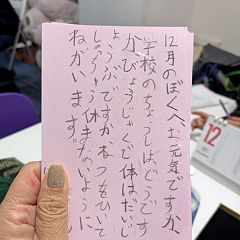 12月のぼくへ。お元気ですか。
学校のちょうしは、どうです
か。びょうじゃくで体はだいじ
ょうぶですか。ねつをひいて
しょっちゅう休まないように
ねがいます。
12